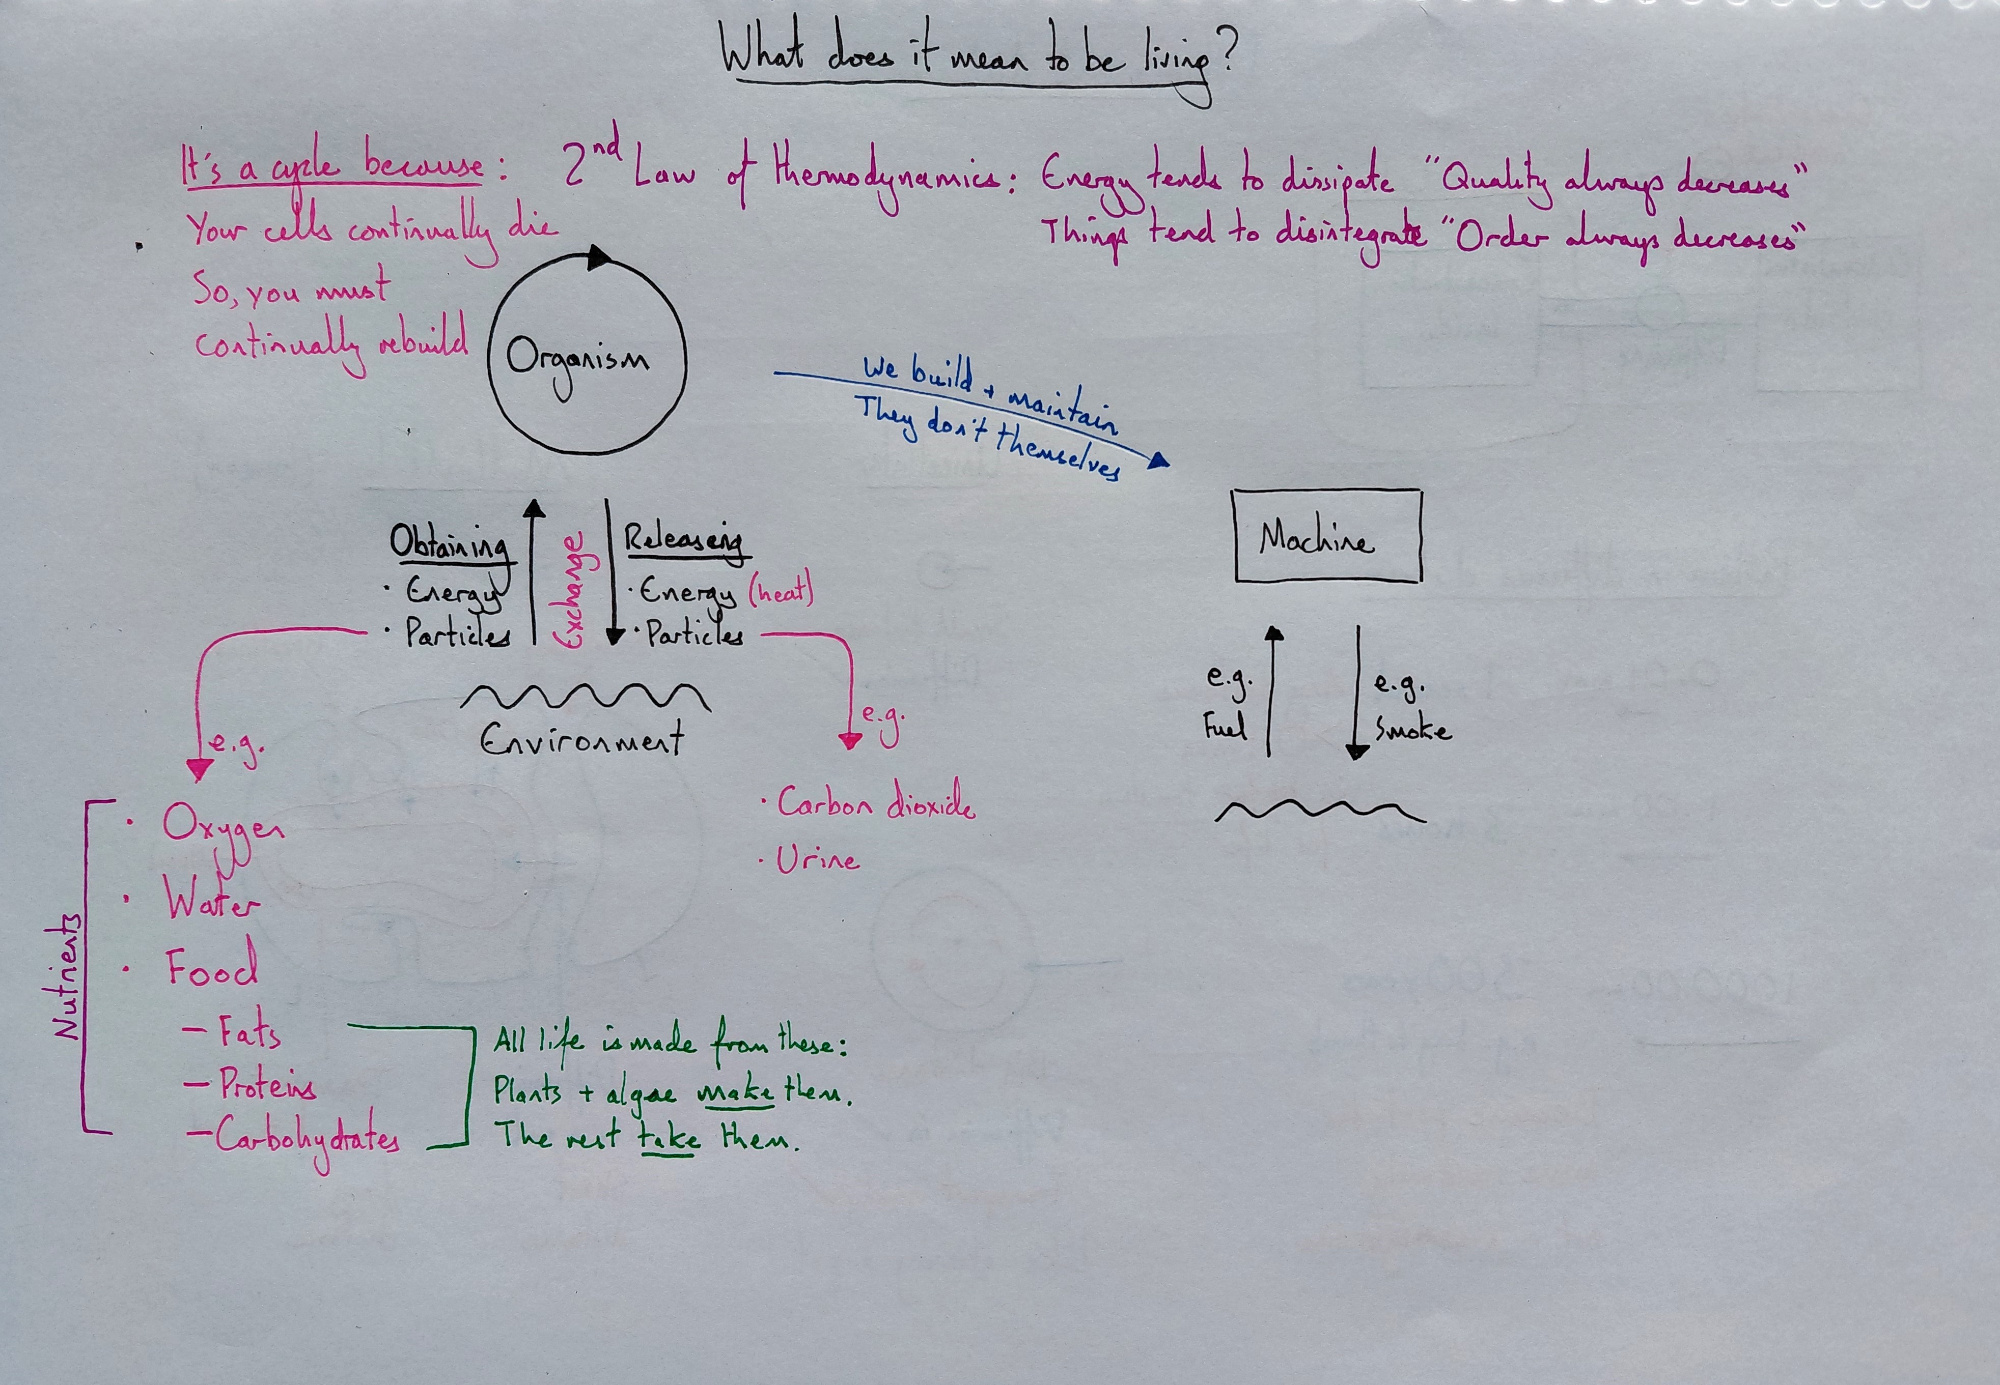 What does it mean to be living?
It's a cycle because:
Your cells continually die
So, you must
continually rebuild
2nd Law of thermodynamics: Energy tends to dissipate "Quality always decreases"
Things tend to disintegrate "Order always decreases"
Organism
We build + maintain
They don't themselves
Machine
Obtaining
· Energy
· Particles
Exchange
Releasing
· Energy (heat)
· Particles
Environment
e.g.
e.g.
e.g.
Fuel
e.g.
Smoke
Nutrients
· Oxygen
· Water
· Food
– Fats
– Proteins
– Carbohydrates
· Carbon dioxide
· Urine
All life is made from these:
Plants + algae make them.
The rest take them.